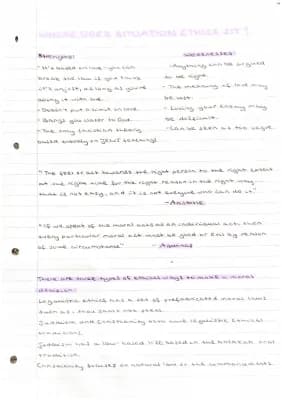 WHERE DOES SITUATION ETHICS SIT?
Strengths: Weaknesses:
- It's based on love - you can
break the law if you think
it's unjust, as long as you're
doing it with love.
- Doesn't put a limit on love.
- Brings you closer to God.
- The only Christian theory
based entirely on Jesus' teaching!
- Anything can be argued
to be right.
- The meaning of love may
be lost.
- Loving your enemy may
be difficult.
- Can be seen as too vague.
"The feel or act towards the right person to the right extent
at the right time for the right reason in the right way
that is not easy, and it is not everyone who can do it."
- Aristotle
"If we speak of the moral act as an individual act, then
every particular moral act must be good or evil by reason
of some circumstance" - Aquinas
There are three types of ethical ways to make a moral
decision:
Legalistic ethics has a set of prefabricated moral laws
such as, thou shalt not steal.
Judaism and Christianity both have legalistic ethical
traditions.
Judaism has a law-based life based on the Halakah oral
tradition.
Christianity focuses on natural law or the commandments.